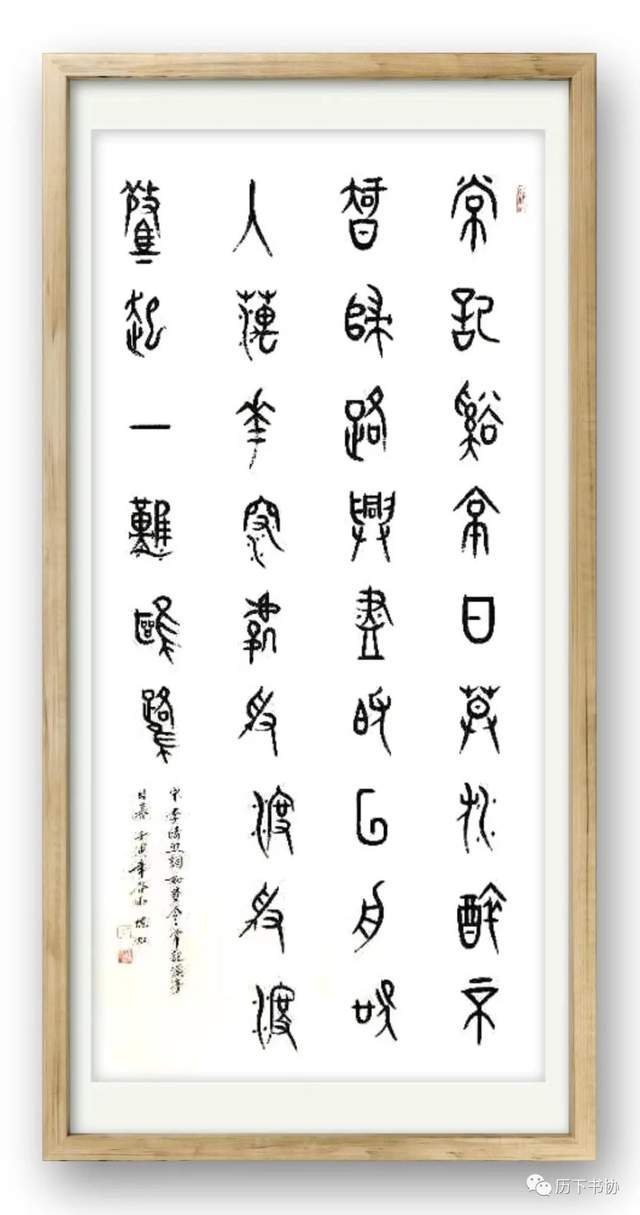 常記谿亭日莫沈醉不
智歸路興盡晚回舟誤
入藕花深處爭渡爭渡
驚起一灘鷗鷺
宋李清照詞如夢令常記溪亭
日暮 壬寅年
历下书协